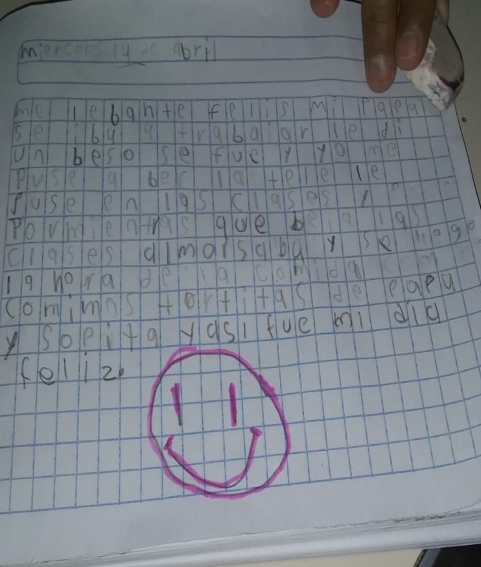 miercoles 14 de abril
me lebante felis mi papa
se iba a trabajar le di
un beso se fue y yo me
puse a ber la tele le
puse en las clases y
Pormientras que beia las
clases almorsaba y se hago
la hora de la comida
comimos tortitas de papa
y sopita y asi fue mi dia
feliz.